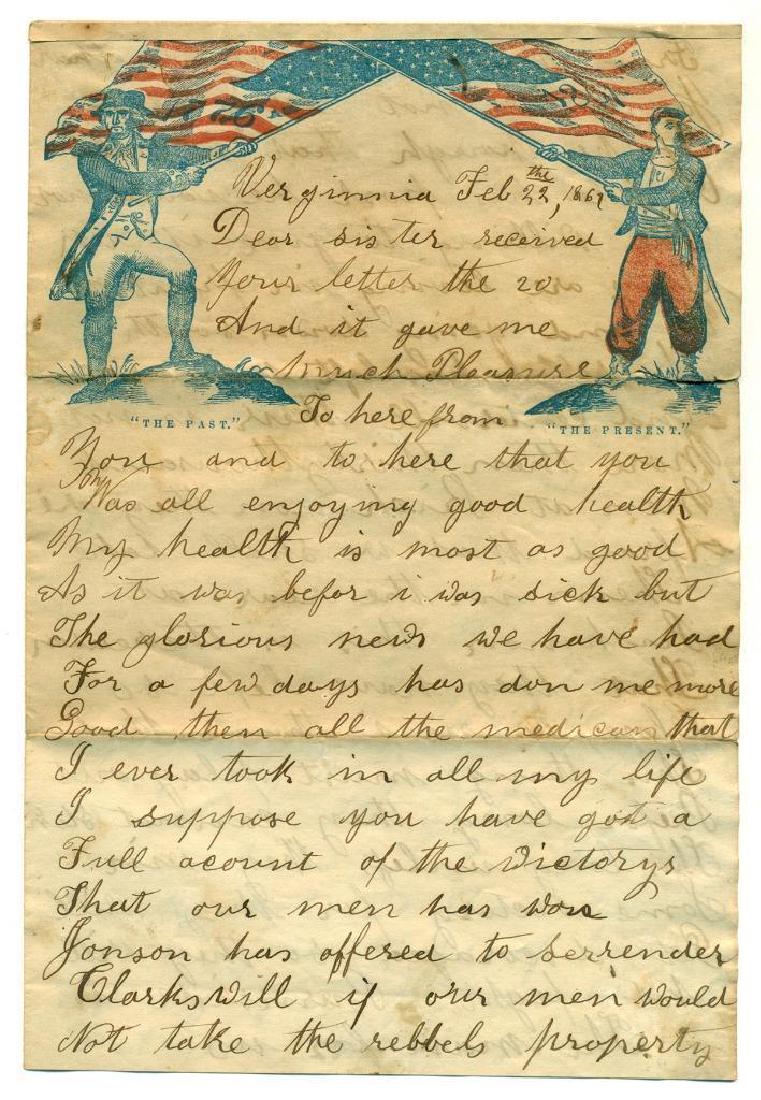 Verginnia Feb 22 the, 1862
Dear sister received
Your letter the 20
And it gave me
Much Pleasure
"THE PAST."
To here from
"THE PRESENT."
You and to here that you
Was all enjoying good health
My health is most as good
As it was befor i was sick but
The glorious news we have had
For a few days has don me more
Good then all the medican that
I ever took in all my life
I suppose you have got a
Full acount of the victorys
That our men has won
Jonson has offered to serrender
Clarksvill if our men would
Not take the rebbels property